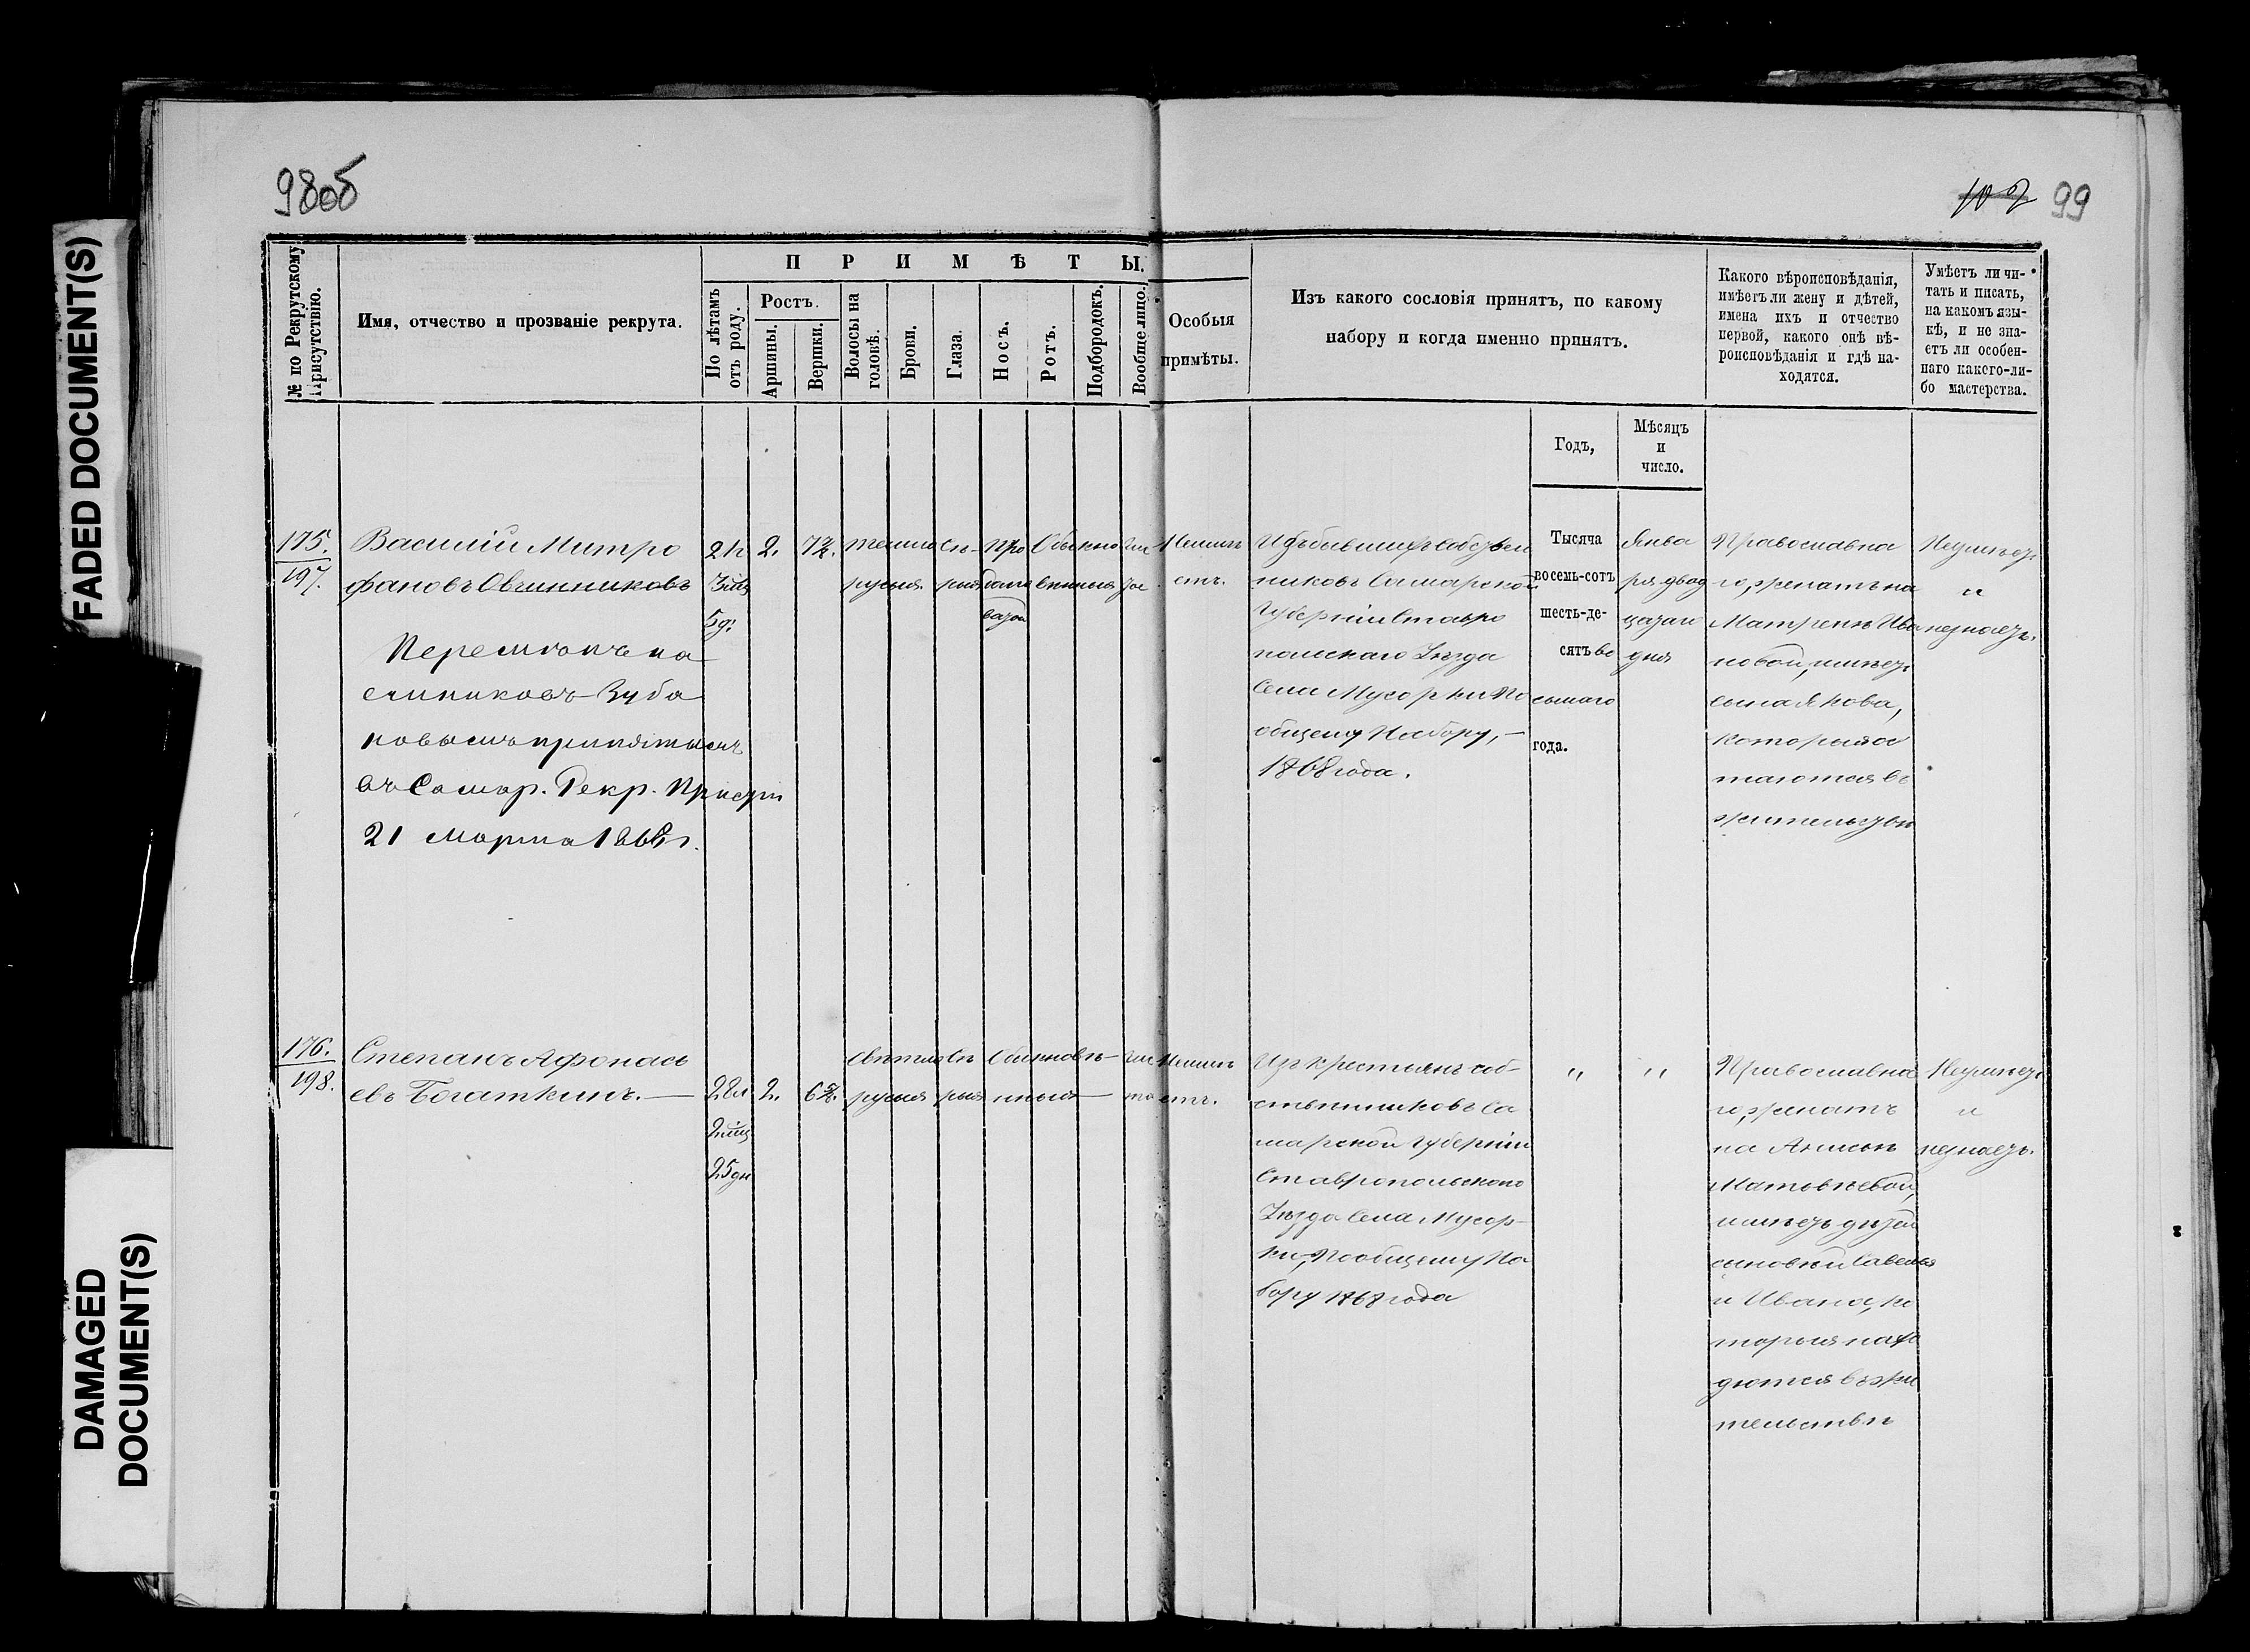 FADED DOCUMENT(S)
DAMAGED
DOCUMENT(S)
98об
102 99
№ по Рекрутскому
Присутствію.
Имя, отчество и прозваніе рекрута.
ПРИМѢТЫ.
По лѣтамъ
отъ роду.
Ростъ.
Аршины.
Вершки.
Волосы на
головѣ.
Брови.
Глаза.
Носъ.
Ротъ.
Подбородокъ.
Вообще лицо.
Особыя
примѣты.
Изъ какого сословія принятъ, по какому
набору и когда именно принятъ.
Какого вѣроисповѣданія,
имѣетъ ли жену и дѣтей,
имена ихъ и отчество
первой, какого онѣ вѣ-
роисповѣданія и гдѣ на-
ходятся.
Умѣетъ ли чи-
тать и писать,
на какомъ язы-
кѣ, и не зна-
етъ ли особен-
наго какого-ли-
бо мастерства.
Годъ,
Мѣсяцъ
и
число.
175.
197.
Василій Митро
фановъ Овчинниковъ
Перемѣненъ на
емникомъ Зуба
новымъ принятымъ
въ Самар. Рекр. Присут
21 Марта 1868 г.
5 д.
2.
темно
русыя.
сѣ-
рыя
Обыкно
венныя
чис
тое
Неимѣ
етъ.
Изъ бывшихъ собствен
никовъ Самарской
Губерніи Ставро
польскаго Уѣзда
Села Мусорки По
общему Набору,-
1868 года.
Тысяча
восемь-сотъ
шесть-де-
сятъ во
сьмаго
года.
Янва
ря двад
цатаго
дня
Православна
го, женатъ на
Матренѣ Ива
новой, имѣетъ
сына Якова,
которыя ос
таются въ
жительствѣ
Неумѣетъ
и
незнаетъ.
176.
198.
Степанъ Афонась
евъ Богаткинъ.-
2 мца
25 дн
2.
Свѣтло
русыя
сѣ
рыя
Обыкновѣ-
нныя
чис
то
Неимѣ
етъ.
Изъ крестьянъ соб-
ственниковъ Са
марской Губерніи
Ставропольскаго
Уѣзда Села Мусор-
ки, По общему На
бору 1868 года
"
"
Православна
го, женатъ
на Анисьѣ
Матовѣевой,
имѣетъ дѣтей
сыновѣй Савелья
и Ивана, ко
торыя нахо
дются въ жи
тельствѣ
Неумѣетъ
и
незнаетъ.